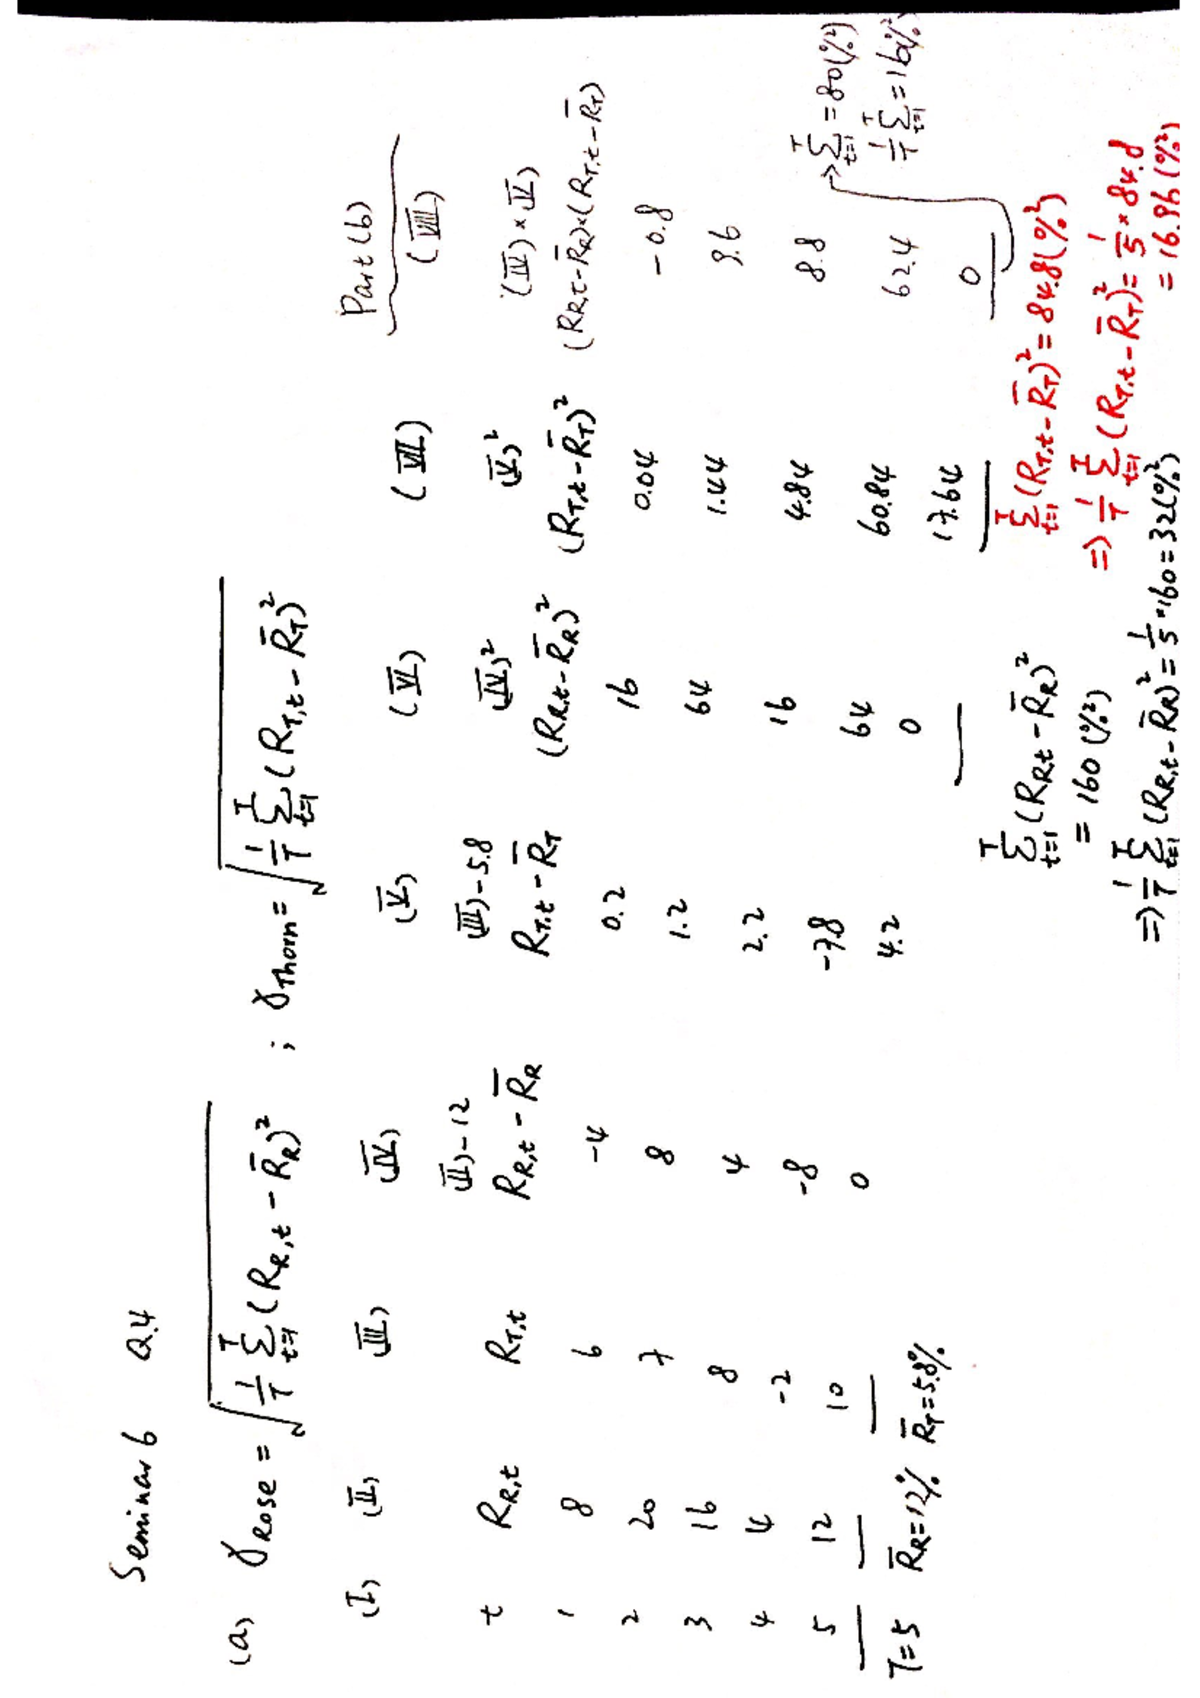 Seminar 6 Q.4
(a) σRose = √(1/T Σ(t=1 to T) (RR,t - R̄R)²) ; σThorn = √(1/T Σ(t=1 to T) (RT,t - R̄T)²)
Part (b)
(I) (II) (III) (IV) (V) (VI) (VII) (VIII)
(II)-12 (III)-5.8 (IV)² (V)² (IV)×(V)
t RR,t RT,t RR,t - R̄R RT,t - R̄T (RR,t - R̄R)² (RT,t - R̄T)² (RR,t - R̄R)×(RT,t - R̄T)
1 8 6 -4 0.2 16 0.04 -0.8
2 20 7 8 1.2 64 1.44 9.6
3 16 8 4 2.2 16 4.84 8.8
4 4 -2 -8 -7.8 64 60.84 62.4
5 12 10 0 4.2 0 17.64 0
T=5 R̄R=12% R̄T=5.8%
Σ(t=1 to T) (RR,t - R̄R)²
= 160 (%²)
=> 1/T Σ(t=1 to T) (RR,t - R̄R)² = 1/5 × 160 = 32(%²)
Σ(t=1 to T) (RT,t - R̄T)² = 84.8(%²)
=> 1/T Σ(t=1 to T) (RT,t - R̄T)² = 1/5 × 84.8
= 16.96 (%²)
→ Σ(t=1 to T) = 80(%²)
1/T Σ(t=1 to T) = 16(%²)